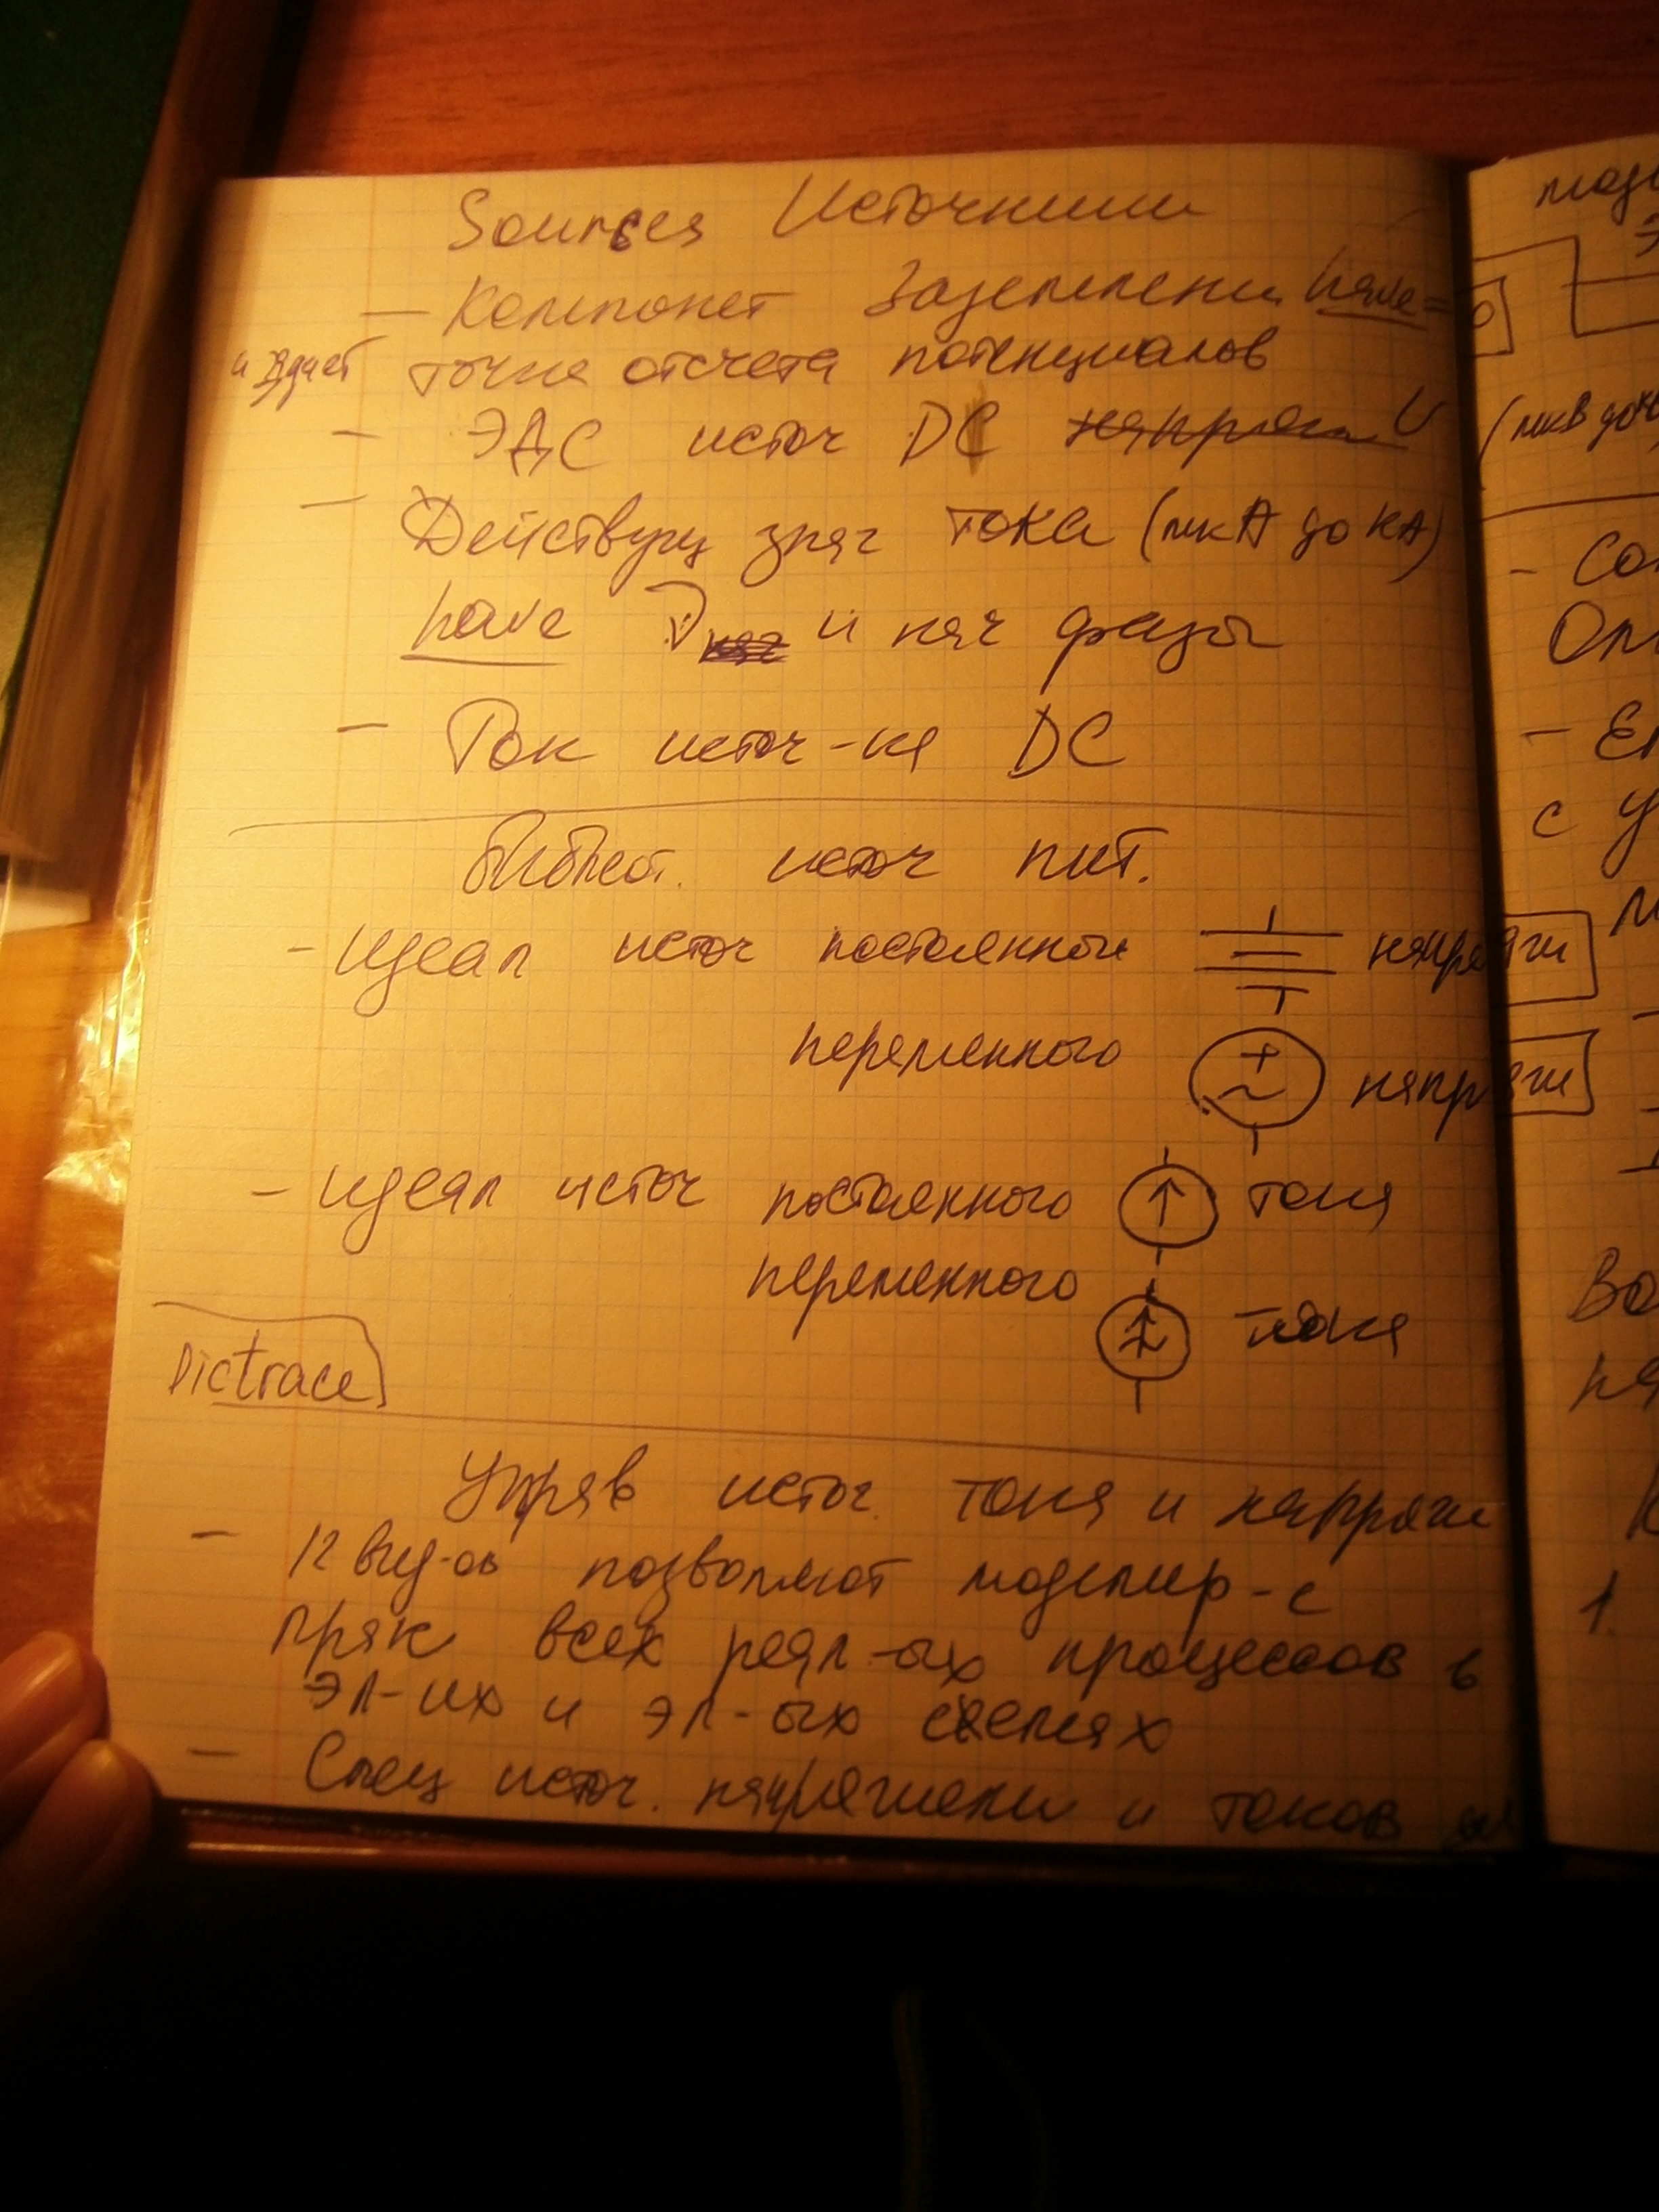 Sources Источники
— Компонет Заземлени have = 0
и здает точка отсчета потенциалов
- ЭДС источ DC U
- Действущ знач тока (мкА до кА)
have и нач фазы
- Ток источ-ка DC
библиот. источ пит.
- Идеал источ постоянного напряги
переменного + ~ напряги
- Идеал источ постоянного тока
переменного тока
Dictrace
Управ источ. тока и напряги
- 12 вид-ов позволяют моделир-с
прак всех реал-ых процессов в
эл-их и эл-ых схемах
- Спец источ. напряжени и токов
(мкВ до
- Со
Оп
с у
Во
на
1.